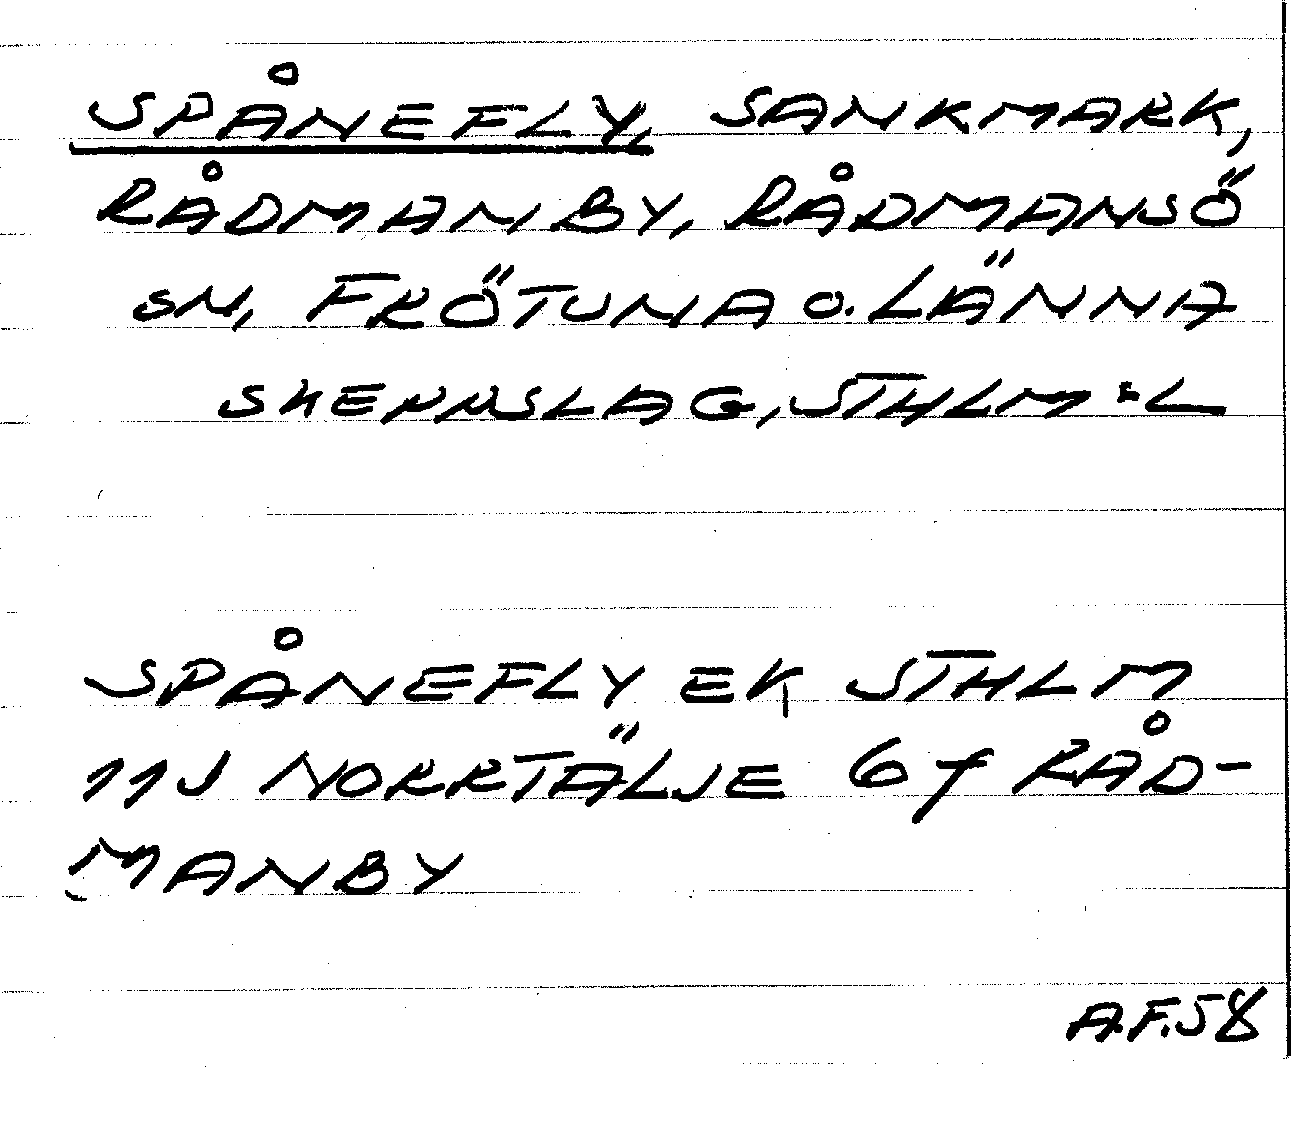 SPÅNEFLY, SANKMARK,
RÅDMANBY, RÅDMANSÖ
SN, FRÖTUNA O. LÄNNA
SKEPPSLAG, STHLM:L
SPÅNEFLY EK STHLM
11J NORRTÄLJE 6f RÅD-
MANBY
A.F.58